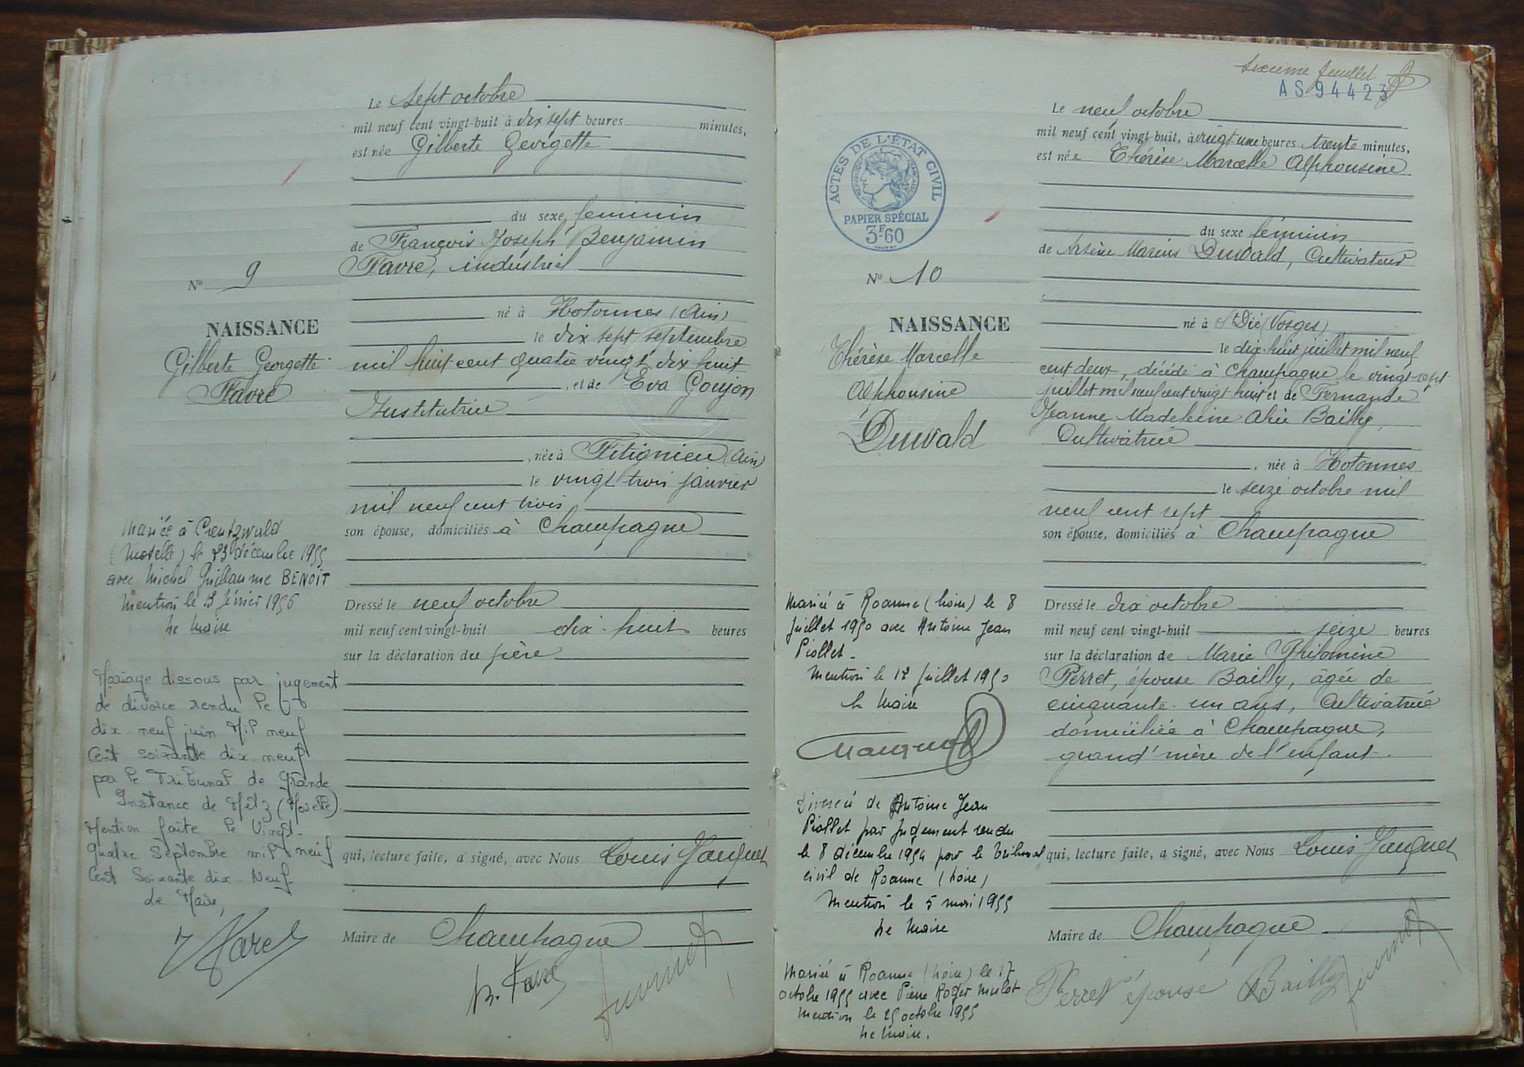 Le sept octobre
mil neuf cent vingt-huit à dix sept heures minutes,
est née Gilberte Georgette
du sexe féminin
de François Joseph Benjamin
Favre, industriel
né à Hotonnes (Ain)
le dix sept septembre
mil huit cent quatre vingt dix huit
, et de Eva Goujon
Institutrice
, née à (Ain)
le vingt trois janvier
mil neuf cent trois
son épouse, domiciliés à Champagne
Dressé le neuf octobre
mil neuf cent vingt-huit dix-huit heures
sur la déclaration du père
qui, lecture faite, a signé, avec Nous Louis
Maire de Champagne
B. Favre
N° 9
NAISSANCE
Gilberte Georgette
Favre
Mariée à Creutzwald
(Moselle) le 23 décembre 1955
avec Michel Guillaume BENOIT
Mention le 3 février 1956
Le Maire
Mariage dissous par jugement
de divorce rendu le
dix neuf juin Mil neuf
Cent soixante dix neuf
par le Tribunal de Grande
Instance de Metz (Moselle)
Mention faite le Vingt-
quatre Septembre mil neuf
Cent Soixante dix Neuf
Le Maire,
sixième feuillet
AS94423
ACTES DE L'ÉTAT CIVIL
PAPIER SPÉCIAL
3F60
Le neuf octobre
mil neuf cent vingt-huit, à vingt une heures trente minutes,
est née Thérèse Marcelle Alphonsine
du sexe féminin
de Arsène Marius Duvald, Cultivateur
né à St Dié (Vosges)
le dix huit juillet mil neuf
cent deux, décédé à Champagne le vingt-sept
juillet mil neuf cent vingt huit et de Fernande
Jeanne Madeleine Bailly,
Cultivatrice
, née à Hotonnes
le seize octobre mil
neuf cent sept
son épouse, domiciliés à Champagne
Dressé le dix octobre
mil neuf cent vingt-huit seize heures
sur la déclaration de Marie Philomène
Perret, épouse Bailly, âgée de
cinquante un ans, Cultivatrice
domiciliée à Champagne,
grand'mère de l'enfant.
qui, lecture faite, a signé, avec Nous Louis
Maire de Champagne
Perret épouse Bailly
N° 10
NAISSANCE
Thérèse Marcelle
Alphonsine
Duvald
Mariée à Roanne (Loire) le 8
juillet 1950 avec Antoine Jean
Piollet.
Mention le 12 juillet 1950
Le Maire
Divorcée de Antoine Jean
Piollet par jugement rendu
le 8 décembre 1954 par le tribunal
civil de Roanne (Loire)
Mention le 5 mai 1955
Le Maire
Mariée à Roanne (Loire) le 17
octobre 1955 avec Pierre Roger
Mention le 25 octobre 1955
Le Maire.